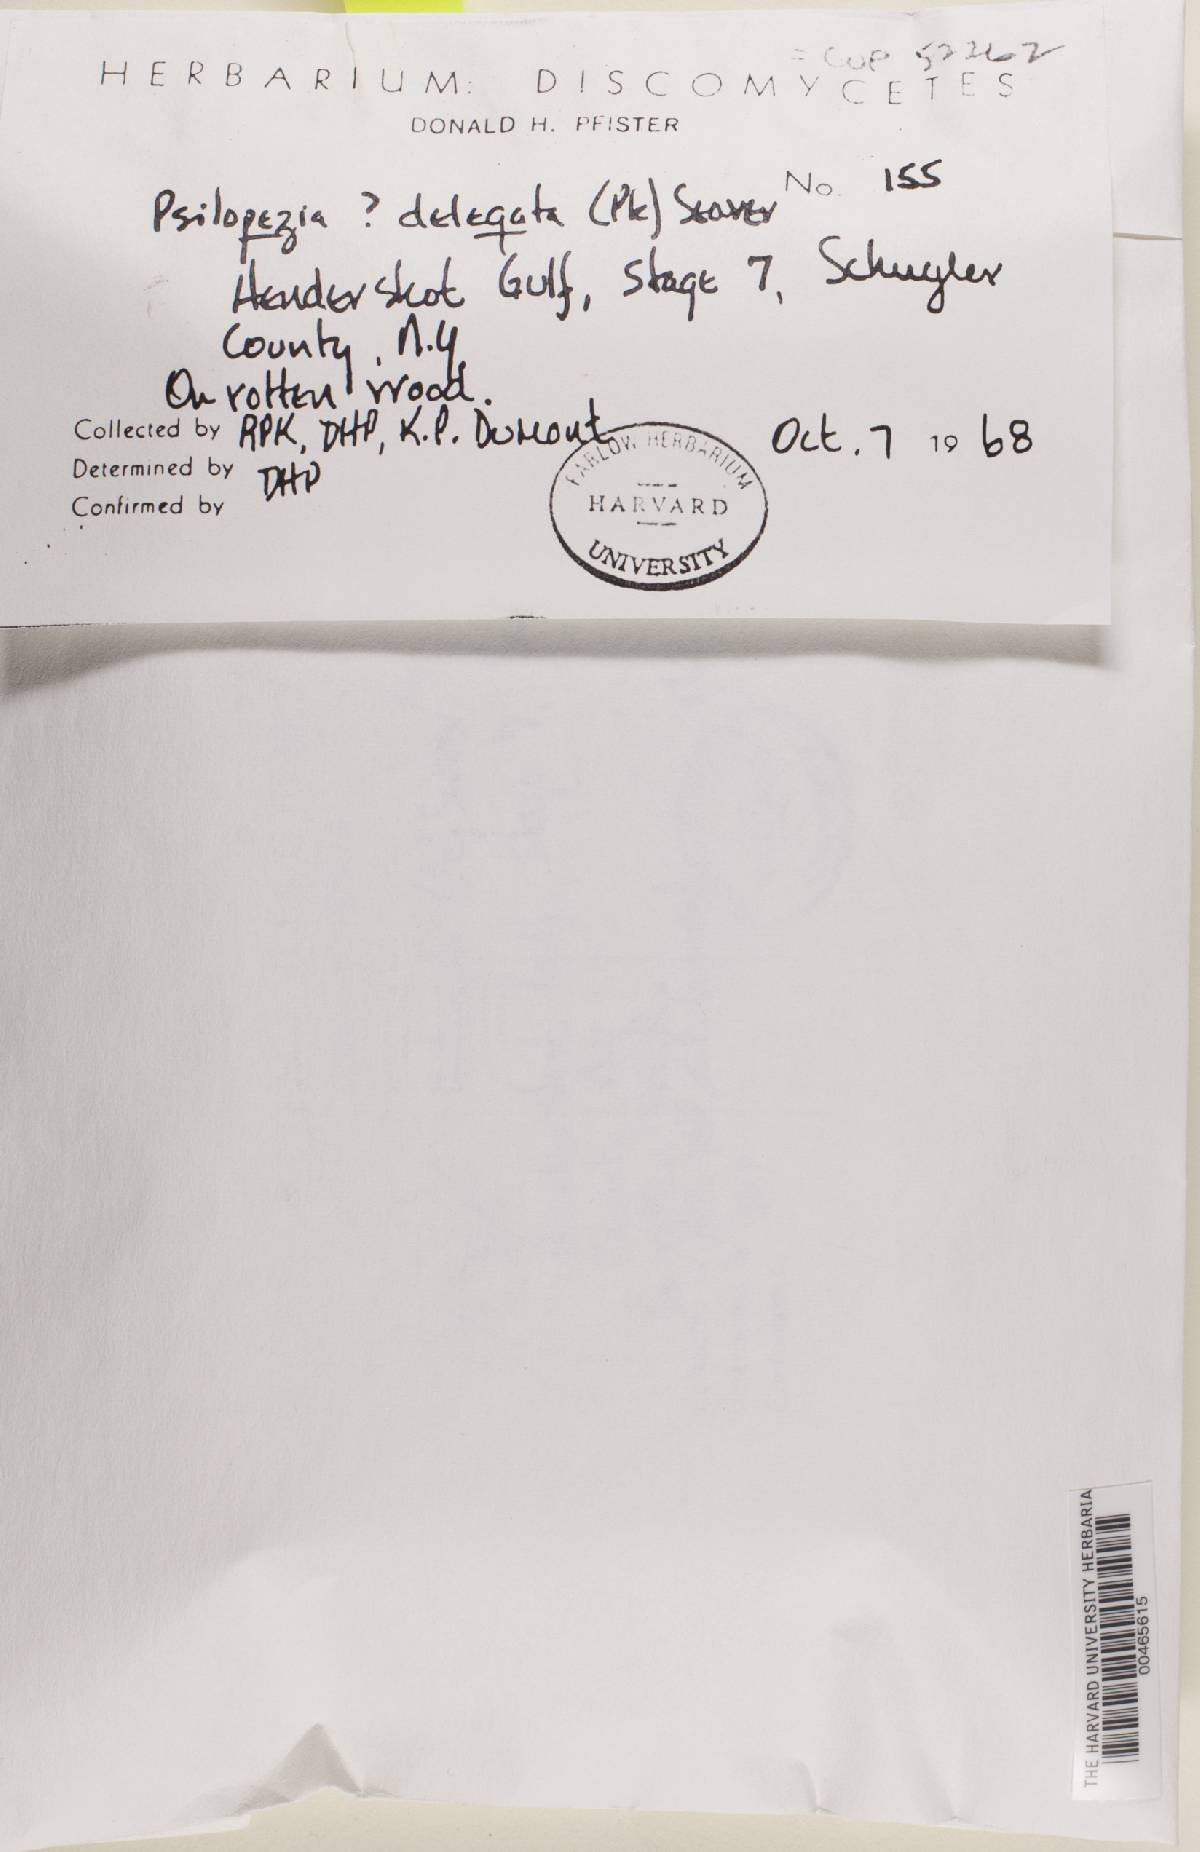 = CUP 52262
HERBARIUM: DISCOMYCETES
DONALD H. PFISTER
No. 155
Psilopezia ? delegata (Pk) Seaver
Hendershot Gulf, Stage 7, Schuyler
County, N.Y.
On rotten wood.
Collected by RPK, DHP, K.P. Dumont
Oct. 7 1968
Determined by DHP
Confirmed by
FARLOW HERBARIUM
HARVARD
UNIVERSITY
THE HARVARD UNIVERSITY HERBARIA
00465615